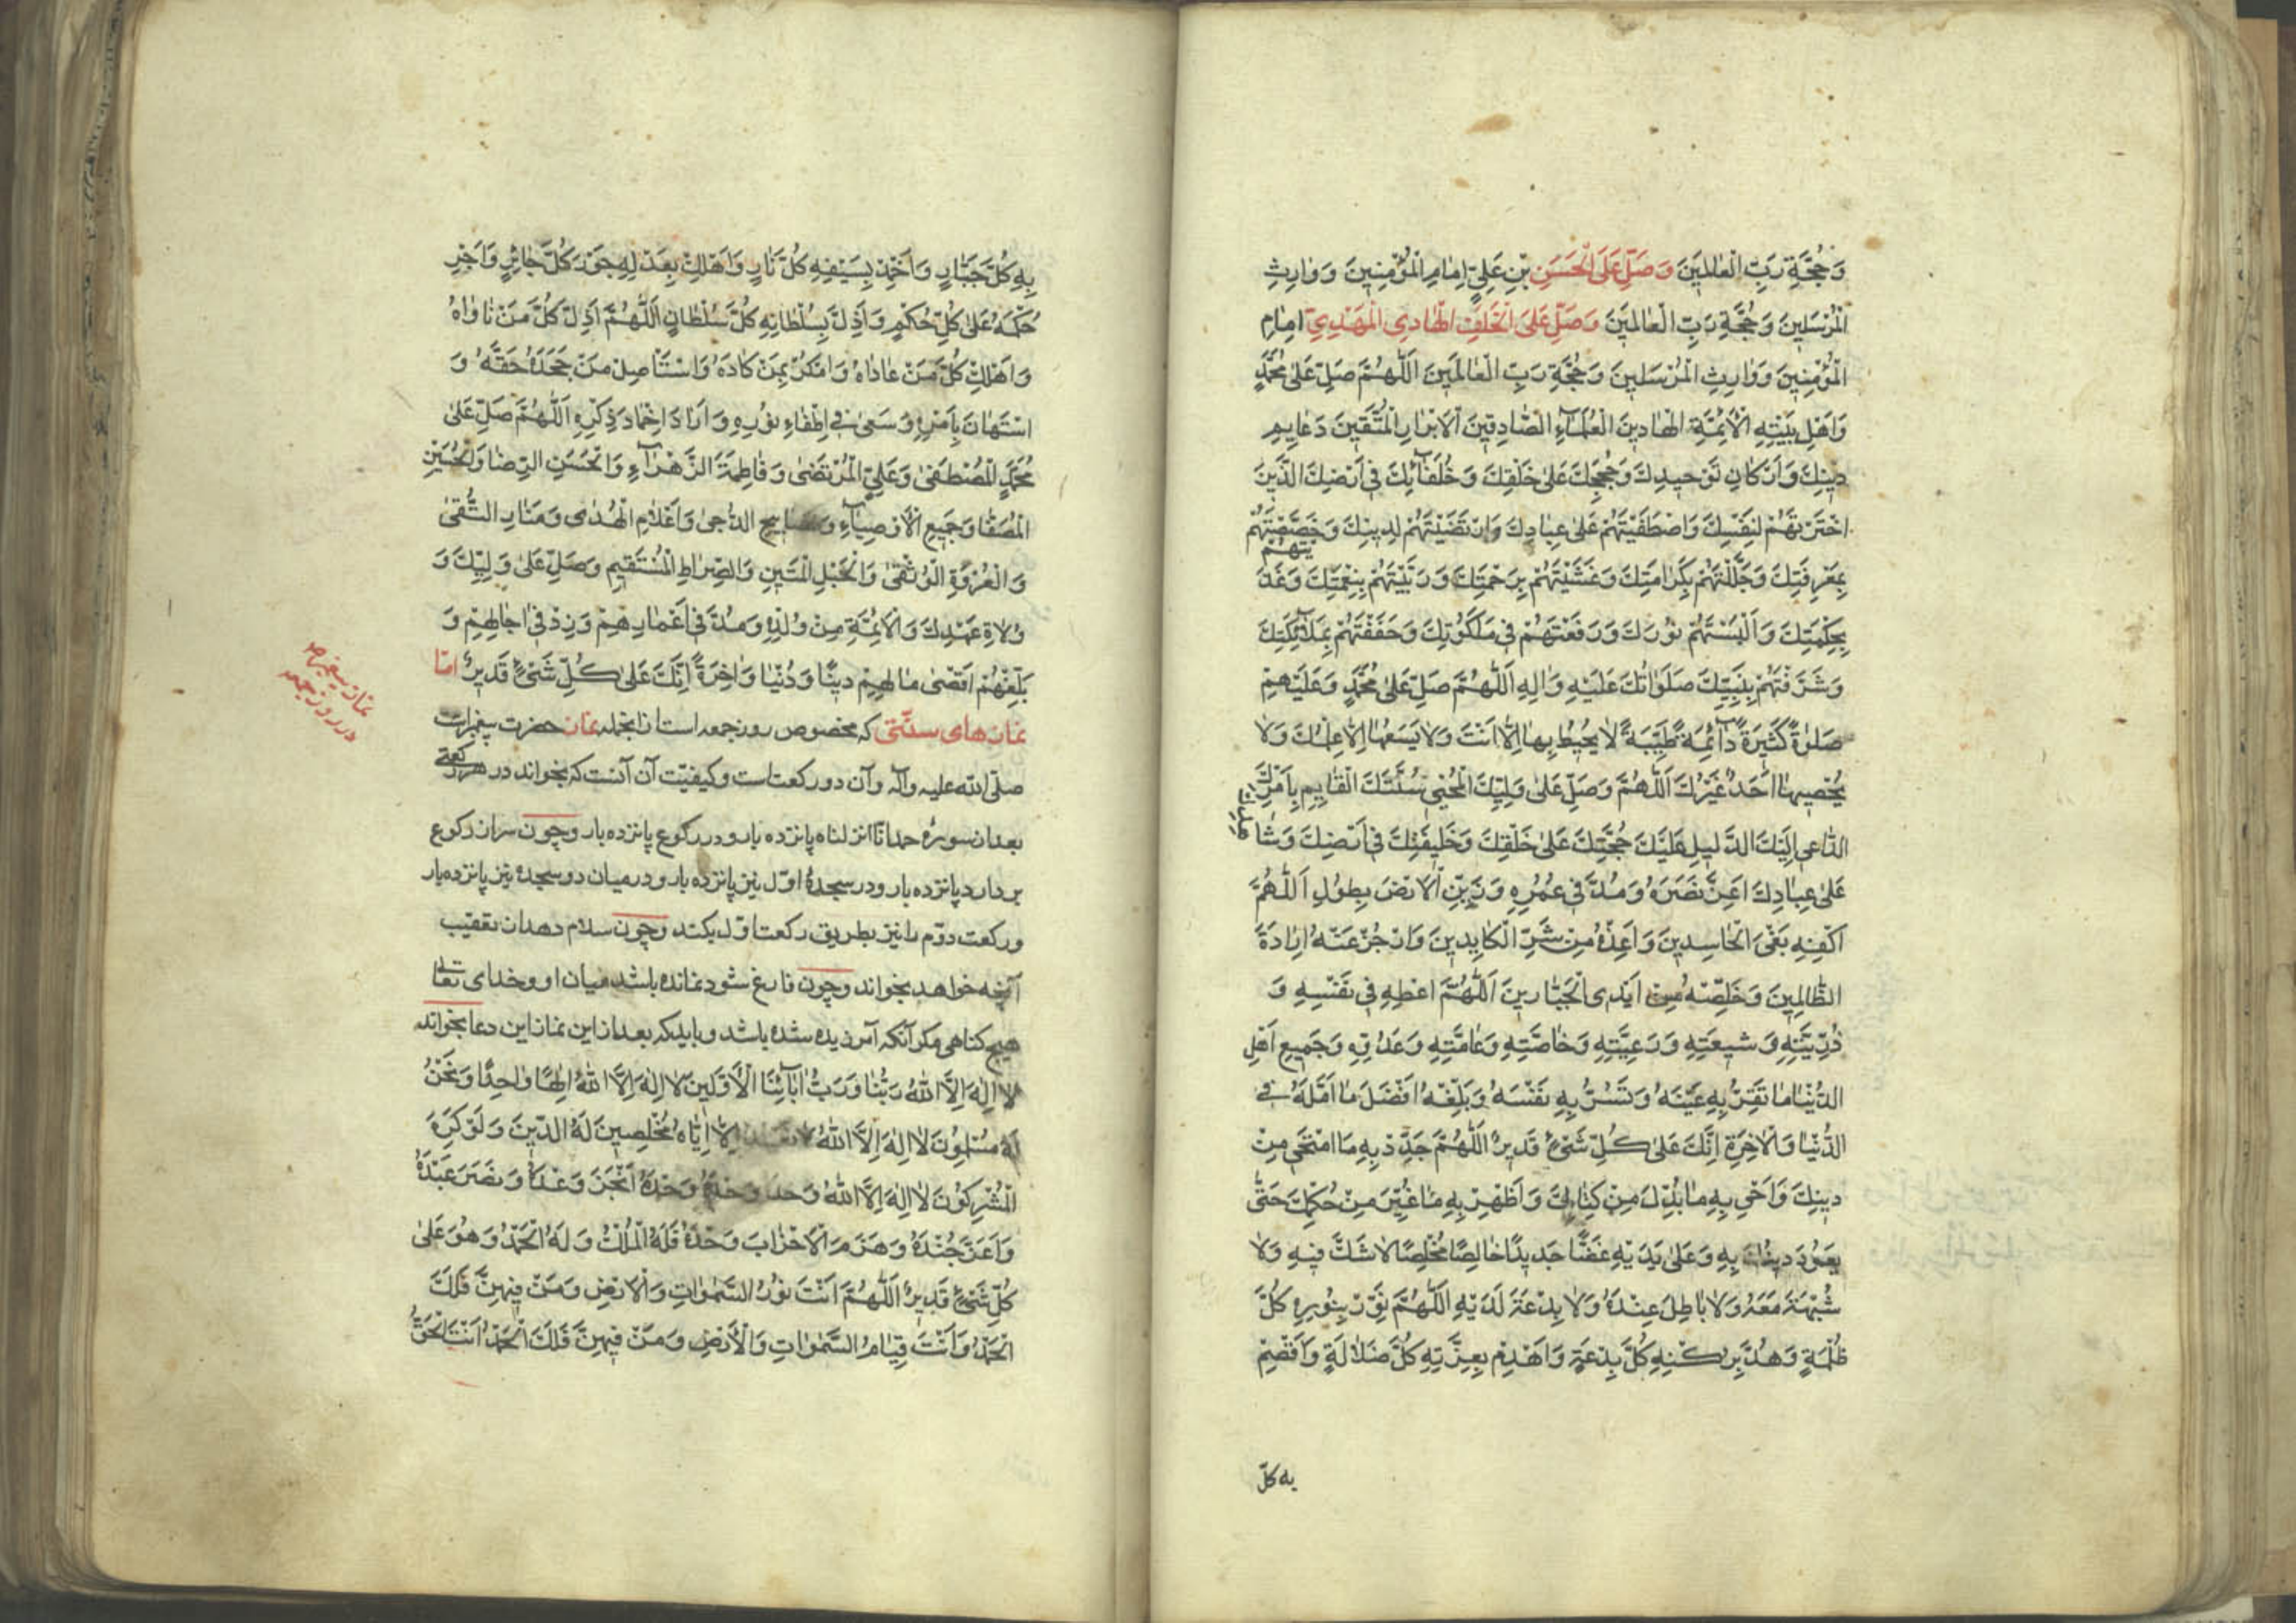 وَحُجَّةِ رَبِّ الْعٰالَمِينَ وَصَلِّ عَلَى الْحَسَنِ بْنِ عَلِيٍّ اِمٰامِ الْمُؤْمِنِينَ وَوٰارِثِ
الْمُرْسَلِينَ وَحُجَّةِ رَبِّ الْعٰالَمِينَ وَصَلِّ عَلَى الْخَلَفِ الْهٰادِي الْمَهْدِيِّ اِمٰامِ
الْمُؤْمِنِينَ وَوٰارِثِ الْمُرْسَلِينَ وَحُجَّةِ رَبِّ الْعٰالَمِينَ اَللّٰهُمَّ صَلِّ عَلىٰ مُحَمَّدٍ
وَاَهْلِ بَيْتِهِ الْاَئِمَّةِ الْهٰادِينَ الْعُلَمٰآءِ الصّٰادِقِينَ الْاَبْرٰارِ الْمُتَّقِينَ دَعٰايِمِ
دِينِكَ وَاَرْكٰانِ تَوْحِيدِكَ وَحُجَجِكَ عَلىٰ خَلْقِكَ وَخُلَفٰآئِكَ فِي اَرْضِكَ الَّذِينَ
اخْتَرْتَهُمْ لِنَفْسِكَ وَاصْطَفَيْتَهُمْ عَلىٰ عِبٰادِكَ وَارْتَضَيْتَهُمْ لِدِينِكَ وَخَصَّصْتَهُمْ
بِمَعْرِفَتِكَ وَجَلَّلْتَهُمْ بِكَرٰامَتِكَ وَغَشَّيْتَهُمْ بِرَحْمَتِكَ وَرَبَّيْتَهُمْ بِنِعْمَتِكَ وَغَذَّيْتَهُمْ
بِحِكْمَتِكَ وَاَلْبَسْتَهُمْ نُورَكَ وَرَفَعْتَهُمْ فِي مَلَكُوتِكَ وَحَفَفْتَهُمْ بِمَلٰآئِكَتِكَ
وَشَرَّفْتَهُمْ بِنَبِيِّكَ صَلَوٰاتُكَ عَلَيْهِ وَاٰلِهِ اَللّٰهُمَّ صَلِّ عَلىٰ مُحَمَّدٍ وَعَلَيْهِمْ
صَلٰوةً كَثِيرَةً دٰآئِمَةً طَيِّبَةً لٰا يُحِيطُ بِهٰا اِلّٰا اَنْتَ وَلٰا يَسَعُهٰا اِلّٰا عِلْمُكَ وَلٰا
يُحْصِيهٰا اَحَدٌ غَيْرُكَ اَللّٰهُمَّ وَصَلِّ عَلىٰ وَلِيِّكَ الْمُحْيِي سُنَّتَكَ الْقٰايِمِ بِاَمْرِكَ
الدّٰاعِي اِلَيْكَ الدَّلِيلِ عَلَيْكَ حُجَّتِكَ عَلىٰ خَلْقِكَ وَخَلِيفَتِكَ فِي اَرْضِكَ وَشٰاهِدِكَ
عَلىٰ عِبٰادِكَ اَعِزَّ نَصْرَهُ وَمُدَّ فِي عُمُرِهِ وَزَيِّنِ الْاَرْضَ بِطُولِ اَللّٰهُمَّ
اَكْفِهِ بَغْيَ الْحٰاسِدِينَ وَاَعِذْهُ مِنْ شَرِّ الْكٰايِدِينَ وَازْجُرْ عَنْهُ اِرٰادَةَ
الظّٰالِمِينَ وَخَلِّصْهُ مِنْ اَيْدِي الْجَبّٰارِينَ اَللّٰهُمَّ اعْطِهِ فِي نَفْسِهِ وَ
ذُرِّيَّتِهِ وَشِيعَتِهِ وَرَعِيَّتِهِ وَخٰاصَّتِهِ وَعٰامَّتِهِ وَعَدُوِّهِ وَجَمِيعِ اَهْلِ
الدُّنْيٰا مٰا تُقِرُّ بِهِ عَيْنَهُ وَتَسُرُّ بِهِ نَفْسَهُ وَبَلِّغْهُ اَفْضَلَ مٰا اَمَّلَهُ فِي
الدُّنْيٰا وَالْاٰخِرَةِ اِنَّكَ عَلىٰ كُلِّ شَيْءٍ قَدِيرٌ اَللّٰهُمَّ جَدِّدْ بِهِ مَا امْتَحىٰ مِنْ
دِينِكَ وَاَحْيِ بِهِ مٰا بُدِّلَ مِنْ كِتٰابِكَ وَاَظْهِرْ بِهِ مٰا غُيِّرَ مِنْ حُكْمِكَ حَتّٰى
يَعُودَ دِينُكَ بِهِ وَعَلىٰ يَدَيْهِ غَضًّا جَدِيدًا خٰالِصًا مُخْلَصًا لٰا شَكَّ فِيهِ وَلٰا
شُبْهَةَ مَعَهُ وَلٰا بٰاطِلَ عِنْدَهُ وَلٰا بِدْعَةَ لَدَيْهِ اَللّٰهُمَّ نَوِّرْ بِنُورِهِ كُلَّ
ظُلْمَةٍ وَهُدَّ بِرُكْنِهِ كُلَّ بِدْعَةٍ وَاهْدِمْ بِعِزَّتِهِ كُلَّ ضَلٰالَةٍ وَاَقْصِمْ
به كلّ
بِهِ كُلَّ جَبّٰارٍ وَاَخْمِدْ بِسَيْفِهِ كُلَّ نٰارٍ وَاَهْلِكْ بِعَدْلِهِ جَوْرَ كُلِّ جٰائِرٍ وَاَجْرِ
حُكْمَهُ عَلىٰ كُلِّ حُكْمٍ وَاَذِلَّ بِسُلْطٰانِهِ كُلَّ سُلْطٰانٍ اَللّٰهُمَّ اَذِلَّ كُلَّ مَنْ نٰاوٰاهُ
وَاَهْلِكْ كُلَّ مَنْ عٰادٰاهُ وَامْكُرْ بِمَنْ كٰادَهُ وَاسْتَاْصِلْ مَنْ جَحَدَهُ حَقَّهُ وَ
اسْتَهٰانَ بِاَمْرِهِ وَسَعىٰ فِي اِطْفٰاءِ نُورِهِ وَاَرٰادَ اِخْمٰادَ ذِكْرِهِ اَللّٰهُمَّ صَلِّ عَلىٰ
مُحَمَّدٍ الْمُصْطَفىٰ وَعَلِيٍّ الْمُرْتَضىٰ وَفٰاطِمَةَ الزَّهْرٰآءِ وَالْحَسَنِ الرِّضٰا وَالْحُسَيْنِ
الْمُصَفّٰا وَجَمِيعِ الْاَوْصِيٰآءِ وَمَصٰابِيحِ الدُّجىٰ وَاَعْلٰامِ الْهُدىٰ وَمَنٰارِ التُّقىٰ
وَالْعُرْوَةِ الْوُثْقىٰ وَالْحَبْلِ الْمَتِينِ وَالصِّرٰاطِ الْمُسْتَقِيمِ وَصَلِّ عَلىٰ وَلِيِّكَ وَ
وُلٰاةِ عَهْدِكَ وَالْاَئِمَّةِ مِنْ وُلْدِهِ وَمُدَّ فِي اَعْمٰارِهِمْ وَزِدْ فِي اٰجٰالِهِمْ وَ
بَلِّغْهُمْ اَقْصىٰ اٰمٰالِهِمْ دِينًا وَدُنْيٰا وَاٰخِرَةً اِنَّكَ عَلىٰ كُلِّ شَيْءٍ قَدِيرٌ امّا
نمازهای سنّتی که مخصوص روز جمعه است از انجمله نماز حضرت پیغمبرات
صلّی الله علیه وآله وآن دو رکعتاست وکیفیّت آن آنست که بخواند در هر رکعتی
بعداز سورهٔ حمد انّا انزلناه پانزده بار و در رکوع پانزده بار وچون سر از رکوع
بردارد پانزده بار ودر سجدهٔ اوّل نیز پانزده بار ودر میان دو سجده نیز پانزده بار
ورکعت دوّم را نیز بطریق رکعت اوّل بکند وچون سلام دهد از تعقیب
آنچه خواهد بخواند وچون فارغ شود نمانده باشد میان او وخدای تعالی
هیچ کناهی مکر آنکه آمرزیده شده باشد و باید که بعد از این نماز این دعا بخواند
لٰا اِلٰهَ اِلَّا اللّٰهُ رَبُّنٰا وَرَبُّ اٰبٰآئِنَا الْاَوَّلِينَ لٰا اِلٰهَ اِلَّا اللّٰهُ اِلٰهًا وٰاحِدًا وَنَحْنُ
لَهُ مُسْلِمُونَ لٰا اِلٰهَ اِلَّا اللّٰهُ لٰا نَعْبُدُ اِلّٰا اِيّٰاهُ مُخْلِصِينَ لَهُ الدِّينَ وَلَوْ كَرِهَ
الْمُشْرِكُونَ لٰا اِلٰهَ اِلَّا اللّٰهُ وَحْدَهُ وَحْدَهُ وَحْدَهُ اَنْجَزَ وَعْدَهُ وَنَصَرَ عَبْدَهُ
وَاَعَزَّ جُنْدَهُ وَهَزَمَ الْاَحْزٰابَ وَحْدَهُ فَلَهُ الْمُلْكُ وَلَهُ الْحَمْدُ وَهُوَ عَلىٰ
كُلِّ شَيْءٍ قَدِيرٌ اَللّٰهُمَّ اَنْتَ نُورُ السَّمٰوٰاتِ وَالْاَرْضِ وَمَنْ فِيهِنَّ فَلَكَ
الْحَمْدُ وَاَنْتَ قِيّٰامُ السَّمٰوٰاتِ وَالْاَرْضِ وَمَنْ فِيهِنَّ فَلَكَ الْحَمْدُ اَنْتَ الْحَقُّ
نماز پیغمبر ص
در روز جمعه